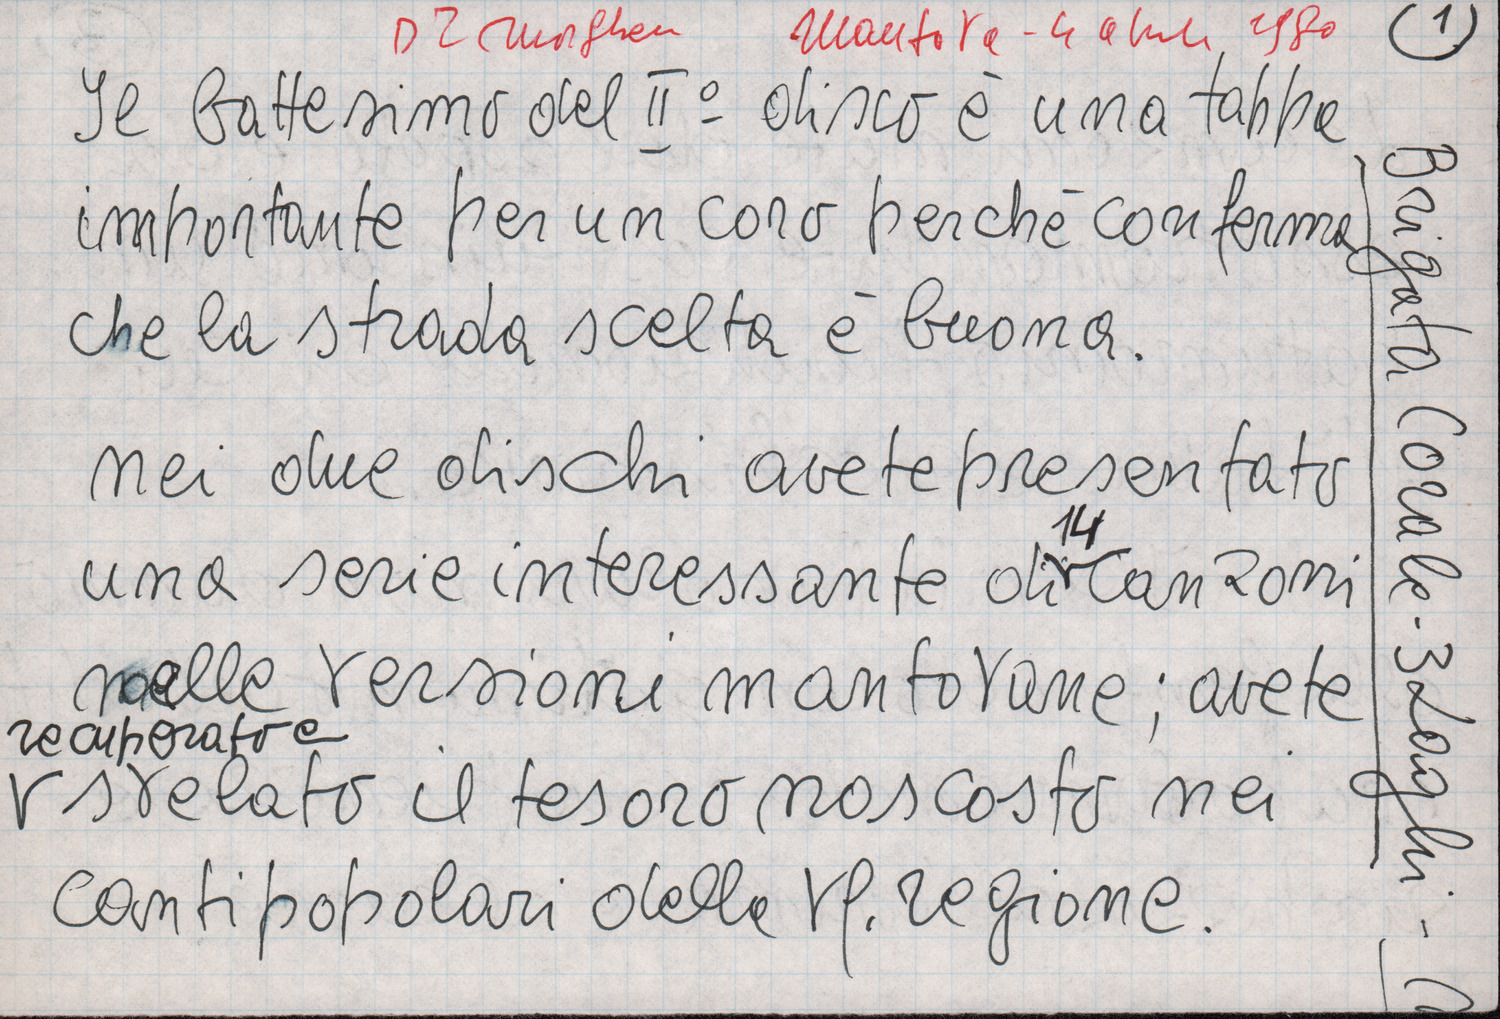 Mantova - 4 aprile 1980
(1)
Il battesimo del II° disco è una tappa
importante per un coro perchè conferma
che la strada scelta è buona.
nei due dischi avete presentato
una serie interessante di 14 Canzoni
nelle versioni mantovane; avete
recuperato e
svelato il tesoro nascosto nei
canti popolari della vs. regione.
Brigata Corale - 3 Laghi -